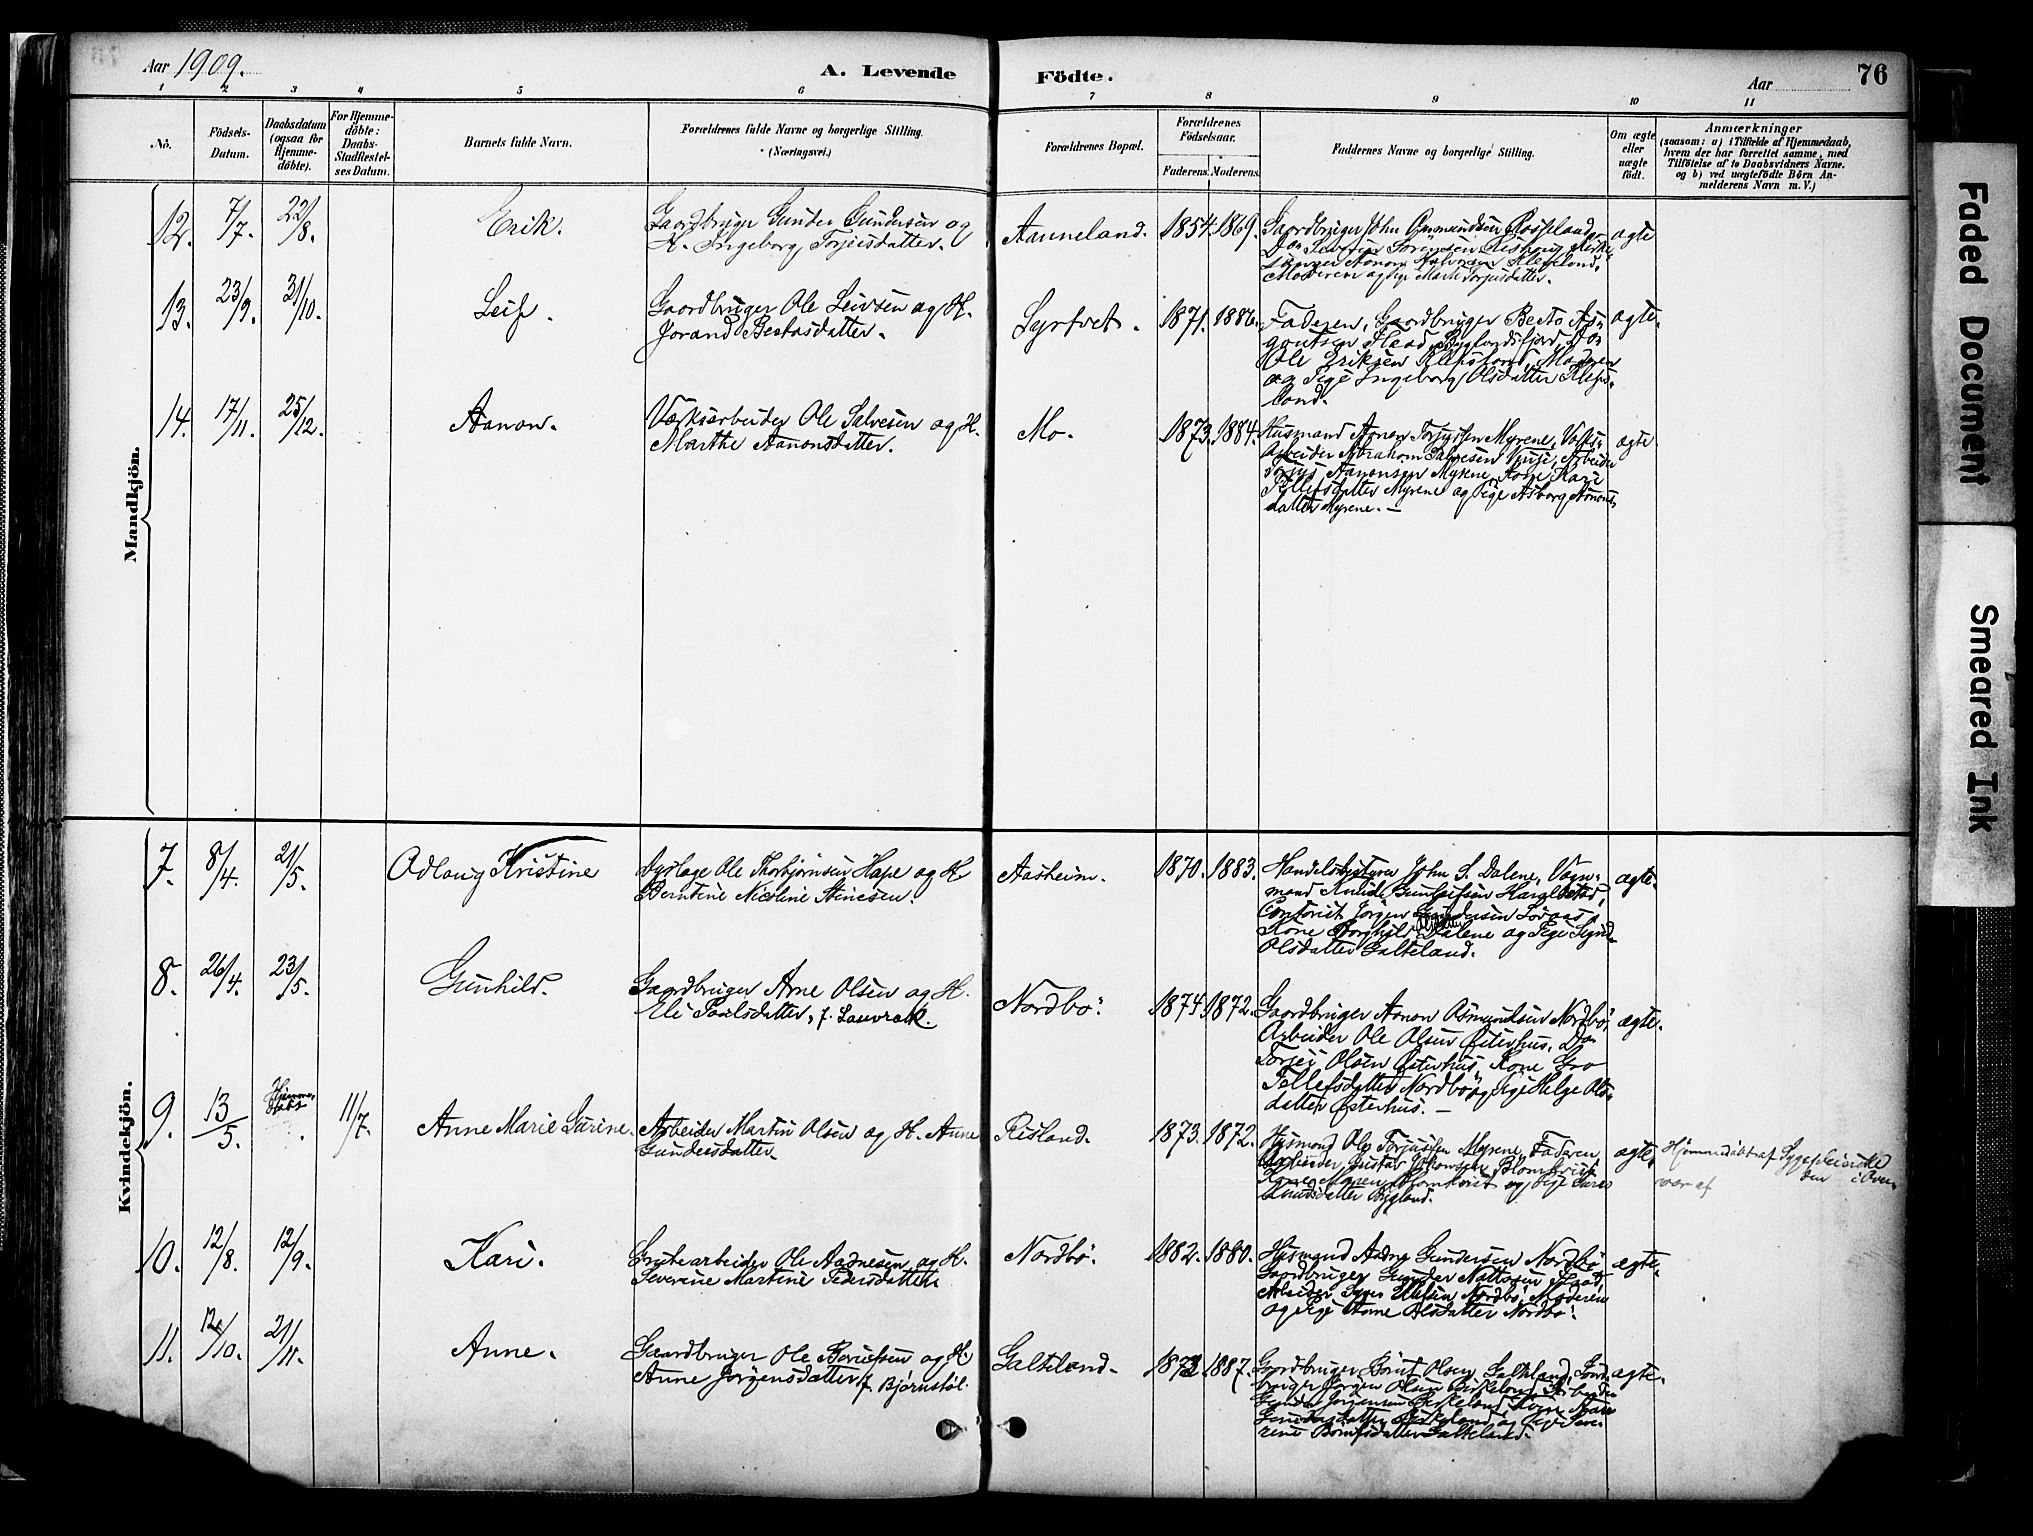 Aar 1909.
A. Levende
Födte.
Aar
76
1 2 3 4 5 6 7 8 9 10 11
No.
Födsels-
Datum.
Daabsdatum
(ogsaa for
Hjemme-
döbte).
For Hjemme-
döbte:
Daabs-
Stadfæstel-
ses Datum.
Barnets fulde Navn.
Forældrenes fulde Navne og borgerlige Stilling.
(Næringsvei.)
Forældrenes Bopæl.
Forældrenes
Födselsaar.
Faderens. Moderens.
Faddernes Navne og borgerlige Stilling.
Om ægte
eller
uægte
födt.
Anmærkninger
(saasom: a) i Tilfælde af Hjemmedaab,
hvem der har forrettet samme, med
Tilföielse af to Daabsvidners Navne,
og b) ved uægtefödte Börn An-
melderens Navn m. V.)
Mandkjön.
12. 7/7. 22/8. Erik.
Gaardbruger Gunder Gundersen og
H. Ingeborg Torjusdatter.
Aanneland. 1854. 1869.
Gaardbruger John Osmundsen Rosseland,
Moderen og Pige Marte Torjusdatter.
ægte
13. 23/9. 31/10. Leif.
Gaardbruger Ole Leivsen og H.
Jorand Bertosdatter.
Syrtvet. 1871. 1886.
Faderen, Gaardbruger Berto As-
Flaad, Byglandsfjord, Do
Ole Eriksen Klepsland, Moderen
og Pige Ingeborg Olsdatter Kleps-
land.
ægte.
14. 17/11. 25/12. Aanon.
Værksarbeider Ole Salvesen og H.
Marthe Aanonsdatter.
Mo. 1873. 1884.
Husmand Aanon Torjussen Myrene, Værks-
arbeider Abraham Salvesen, Arbeider
Torjus Aanonsen Myrene, Kone Kari
Tellefsdatter Myrene og Pige Asborg Aanons-
datter Myrene.—
ægte
Kvindekjön.
7. 8/4. 21/5. Odlaug Kristine
Ole Thorbjørnsen Hape og H
Berntine Nicoline Stinesen.
Aasheim. 1870. 1883.
Handelsbestyrer John S. Dalene, Vogn-
mand Knud Gunlufsen
Contorist Jørgen Gundersen
Kone Borghild Dalene og Pige Signe
Olsdatter Galteland.
ægte.
8. 26/4. 23/5. Gunhild.
Gaardbruger Arne Olsen og H.
Eli Paalsdatter, f. Lauvrak.
Nordbø. 1874. 1872.
Gaardbruger Aanon Osmundsen Nordbø,
Arbeider Ole Olsen Østerhus, Do
Torjei Olsen Østerhus, Kone Gro
Tellefsdatter Nordbø og Pige Helge Ols-
datter Østerhus.—
ægte.
9. 13/5. Hjemme-
døbt. 11/7. Anne Marie Gurine.
Arbeider Martin Olsen og H. Anne
Gundersdatter.
Risland. 1873. 1872.
Husmand Ole Torjussen Myrene, Faderen,
Arbeider Gustav Johansen Blomkvist
Kone Maren Blomkvist og Pige
Knudsdatter Bygland.
ægte,
Hjemmedøbt af Sygepleierske
10. 12/8. 12/9. Kari.
Grubearbeider Ole Aadnesen og H.
Severine Martine Pedersdatter
Nordbø. 1882. 1880.
Husmand Aadne Gundersen Nordbø
Gaardbruger Gunder Flaat,
Arbeider Nordbø, Moderen
og Pige Anne Olsdatter Nordbø.
ægte.
11. 12/10. 21/11. Anne.
Gaardbruger Ole Borulfsen og H.
Anne Jørgensdatter f. Bjørnstøl.
Galteland. 1873. 1887.
Gaardbruger Olsen Galteland, Gaard-
bruger Jørgen Olsen Birkeland, Arbeider
Gunder Jørgensen Birkeland, Kone
Gundersdatter Birkeland, og Pige Seve-
rine Galteland.
ægte.
Faded Document
Smeared Ink